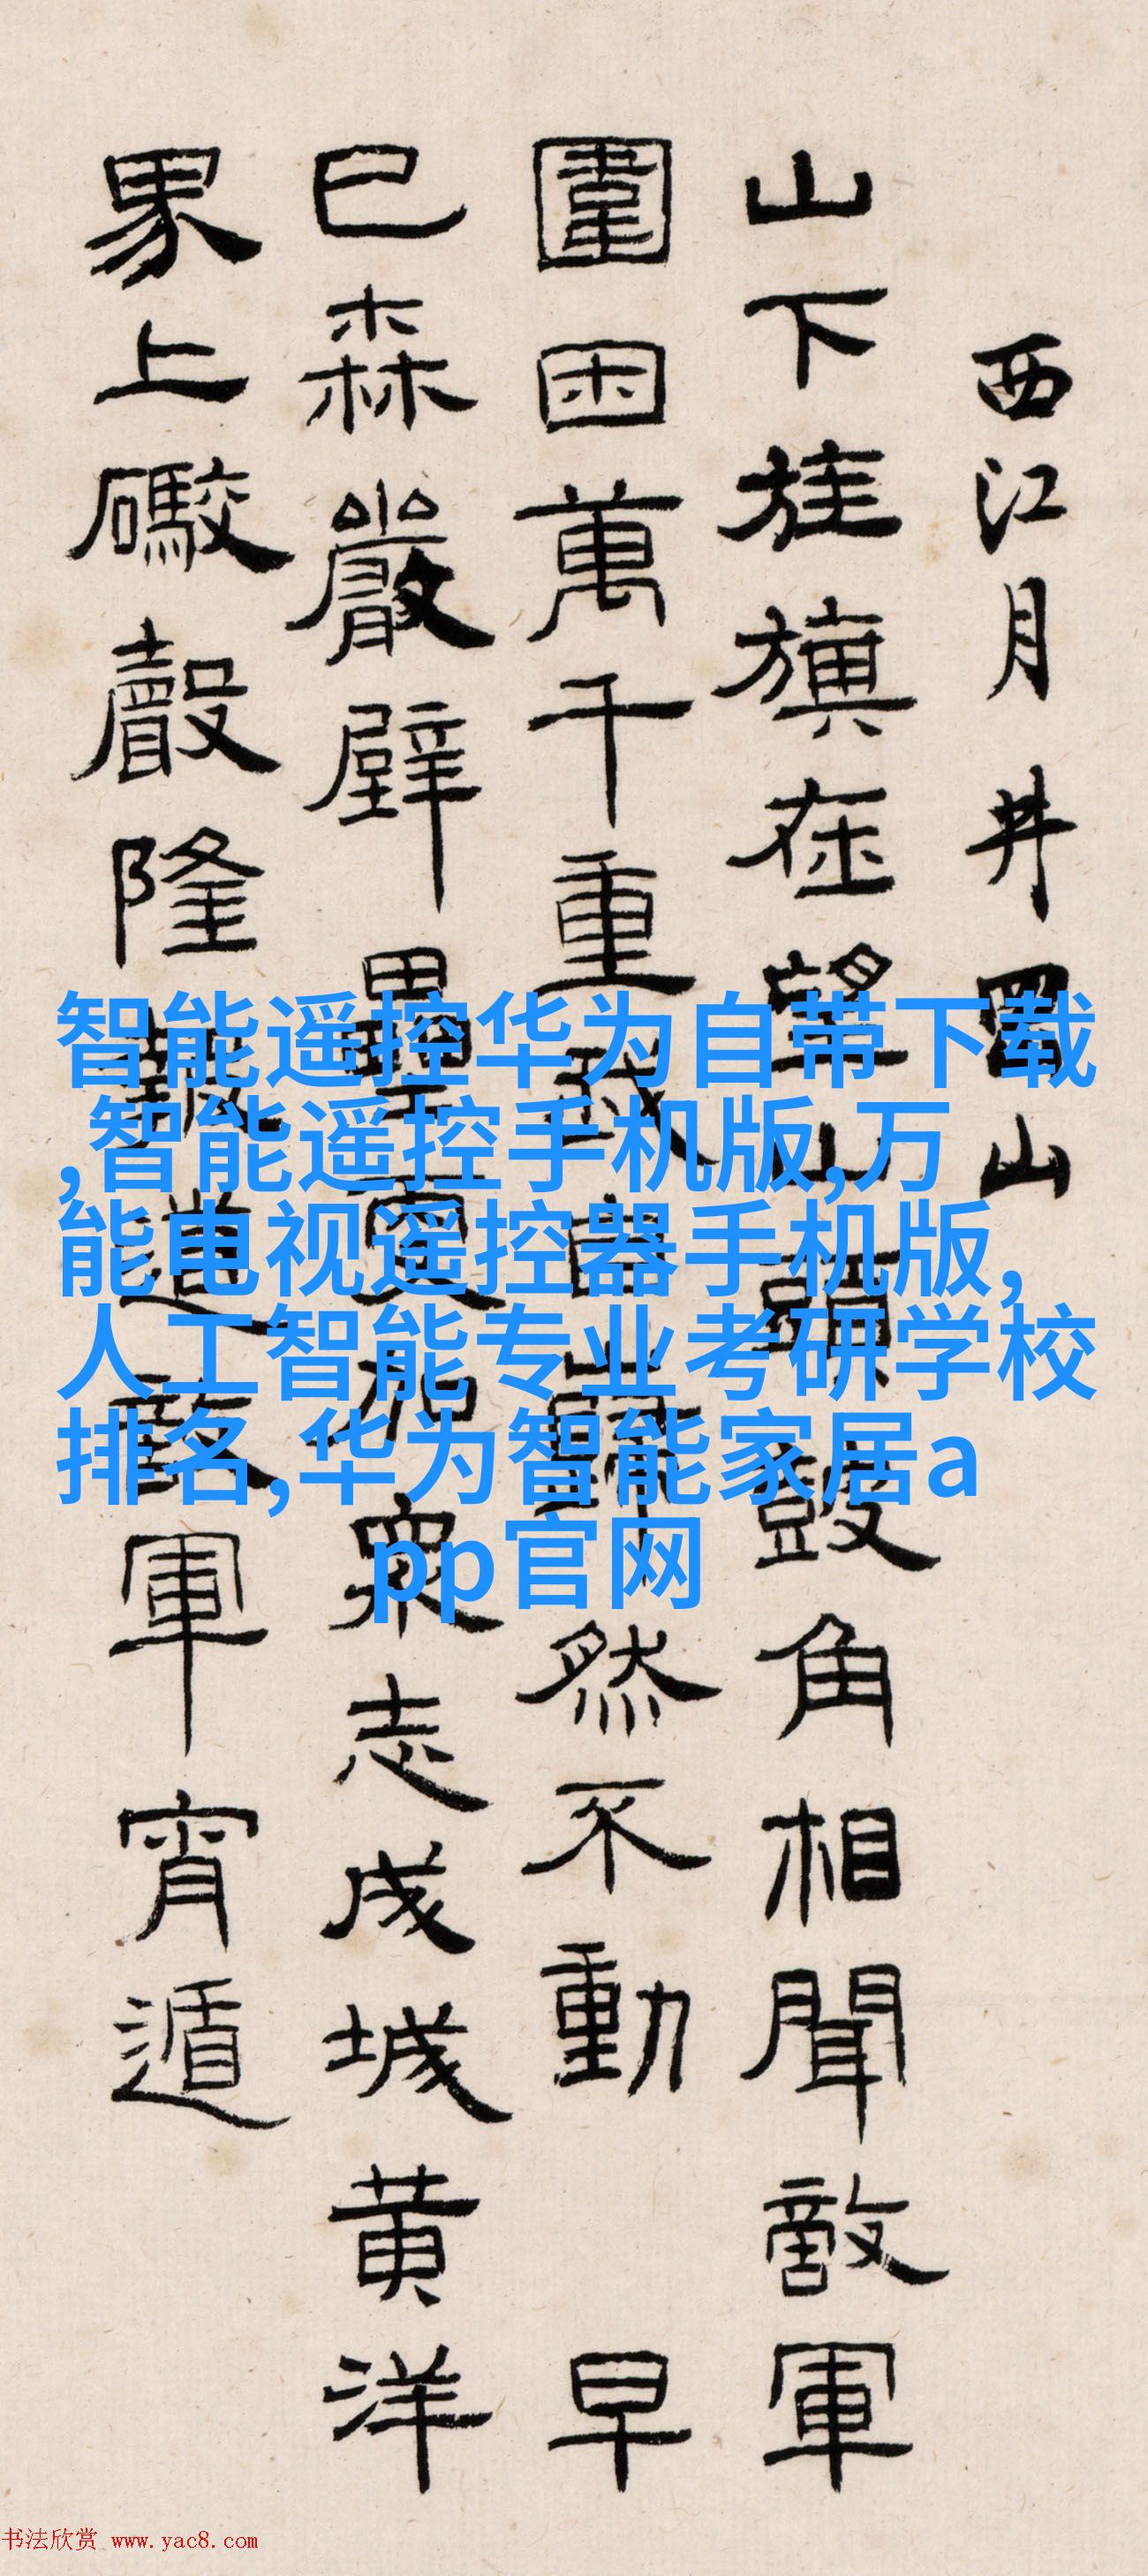 西江月井岡山
山下旌旗在望山頭鼓角相聞敵軍
圍困萬千重我自巋然不動 早
已森嚴壁壘更加衆志成城黄洋
界上礮聲隆報道敵軍宵遁
智能遥控华为自带下载
,智能遥控手机版,万
能电视遥控器手机版,
人工智能专业考研学校
排名,华为智能家居a
pp官网
书法欣赏 www.yac8.com